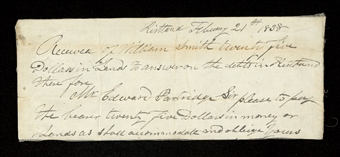 Kirtland February 21th 1838
Received of William Smith twenty five
Dollars in Lands to answer on the debts in Kirtland
there for
Mr Edward Partridge Sir please to pay
the bearer twenty five Dollars in money or
Lands as shall accommodate and oblige yours